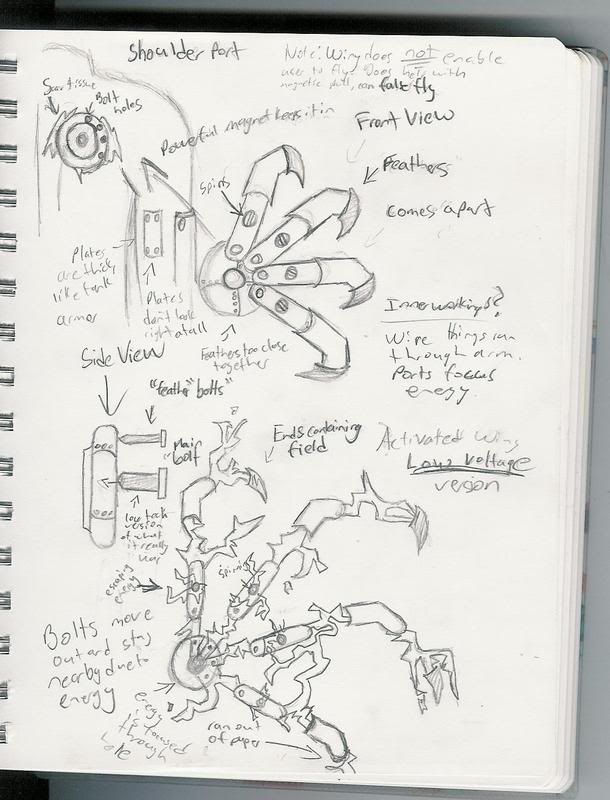 Shoulder Port
Note: Wing does not enable
user to fly. Does
magnetic pull, can false fly
Scar tissue
Bolt
holes
Powerful magnet keeps it in
Front View
Feathers
comes apart
spins
Plates
are thick,
like tank
armor
Plates
don't look
right at all
Feathers too close
together
Inner workings?
Wire things run
through arm.
Ports focus
energy.
Side View
"feather" bolts
Main
bolt
Ends containing
field
Activated Wing
Low Voltage
version
low tech
version
of what
it really
has
escaping
energy
spinning
Bolts move
out and stay
nearby due to
energy
energy
is focused
through
hole
ran out
of paper